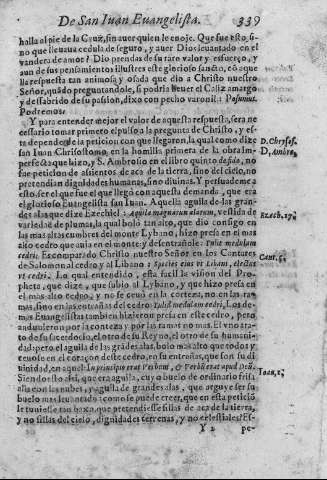 De San Iuan Euangelista. 339
halla el pie de la Cruz, sin auer quien le enoje. Que fue esto, si-
no que lleuaua cedula de seguro, y auer Dios leuantado en el
vandera de amor? Dio prendas de su raro valor y esfuerço, y
aun de sus pensamientos illustres este glorioso sancto, có aque
lla respuesta tan animosa y osada que dio a Christo nuestro
Señor, quãdo preguntandole, si podria beuer el Caliz amargo
y desabrido de su pasion, dixo con pecho varonil: Possumus.
Podremos.
Y para entender mejor el valor de aquesta respuesta, sera ne
cessario tomar primero el pulso a la pregunta de Christo, y es-
ta depende de la peticion con que llegaron, la qual como dize
san Iuan Chrisostomo, en la homilia primera de la obra im-
perfecta que hizo, y S. Ambrosio en el libro quinto de fide, no
fue peticion de asientos de aca de la tierra, sino del cielo, no
pretendian dignidades humanas, sino diuinas. Y persuademe a
esto, ser el que fue el que llegó con aquesta demanda, que era
el glorioso Euangelista san Iuan. Aquella aguila de las gran-
des alas que dize Ezechiel: Aquila magnarum alarum, vestida de
variedad de plumas, la qual boló tan alto, que dio consigo en
las mas altas cumbres del monte Lybano, hizo presa en el mas
alto cedro que auia en el monte y desentrañole: Tulit medulam
cedri. Es comparado Christo nuestro Señor en los Cantares
de Salomon al cedro y al Libano: Species eius vt Libani, electus
vt cedri. Lo qual entendido, esta facil la vision del Pro-
pheta, que dize, que subio al Lybano, y que hizo presa en
el mas alto cedro, y no se ceuó en la corteza, no en las ra-
mas, sino en las entrañas del cedro: Tulit medulam cedri. Los de-
mas Euangelistas tambien hizieron presa en este cedro, pero
anduuieron por la corteza y por las ramas no mas. El vno tra-
to de su sacerdocio, el otro de su Reyno, el otro de su humani-
dad: pero el aguila de las grãdes alas, bolo mas alto que todos y
ceuose en el coraçon deste cedro, en su entrañas, que son su di
uinidad, en aquel: In principio erat Verbum, & Verbũ erat apud Deũ.
Siendo esto assi, que era aguila, cuyo buelo de ordinario frisa
alla con las nubes, y aguila de grandes alas, que arguye ser su
buelo mas leuantado: como se puede creer, que en esta peticiõ
le tuuiesse tan baxo, que pretendiesse sillas de aca de la tierra,
y no sillas del cielo, dignidades terrenas, y no celestiales? Es-
Y 2 pe-
D. Chrysos.
D. Ambro.
Ezech. 17.
Cant. 5.
Ioan. 1.